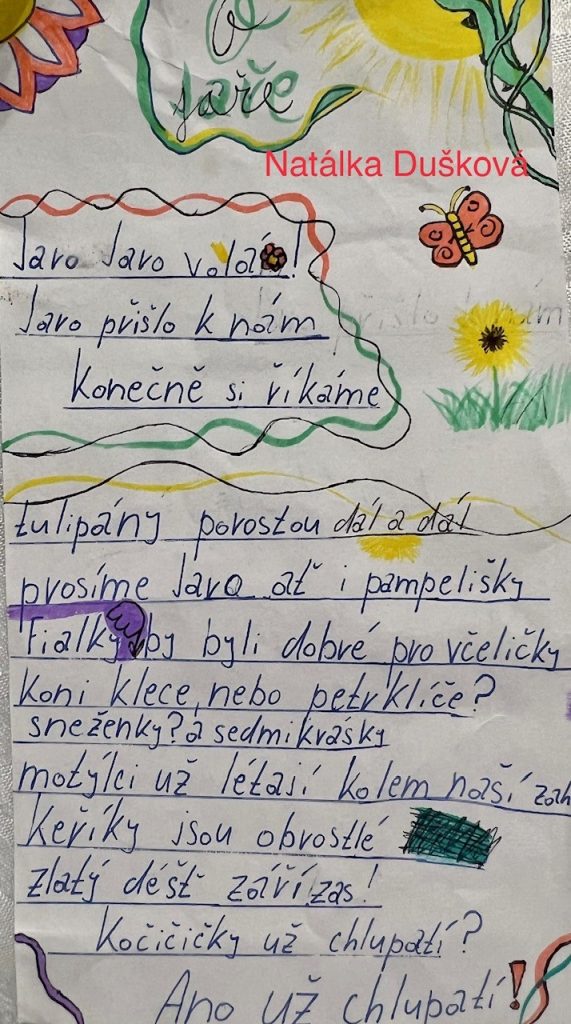 O
jaře
Natálka Dušková
Jaro Jaro volá!
Jaro přišlo k nám
konečně si říkáme
tulipány porostou dál a dál
prosíme Jaro ať i pampelišky
Fialky by byli dobré pro včeličky
koni klece, nebo petrklíče?
sneženky? a sedmikrásky
motýlci už létají kolem naší zah
keříky jsou obrostlé
zlatý déšť září zas!
kočičičky už chlupatí?
Ano už chlupatí!